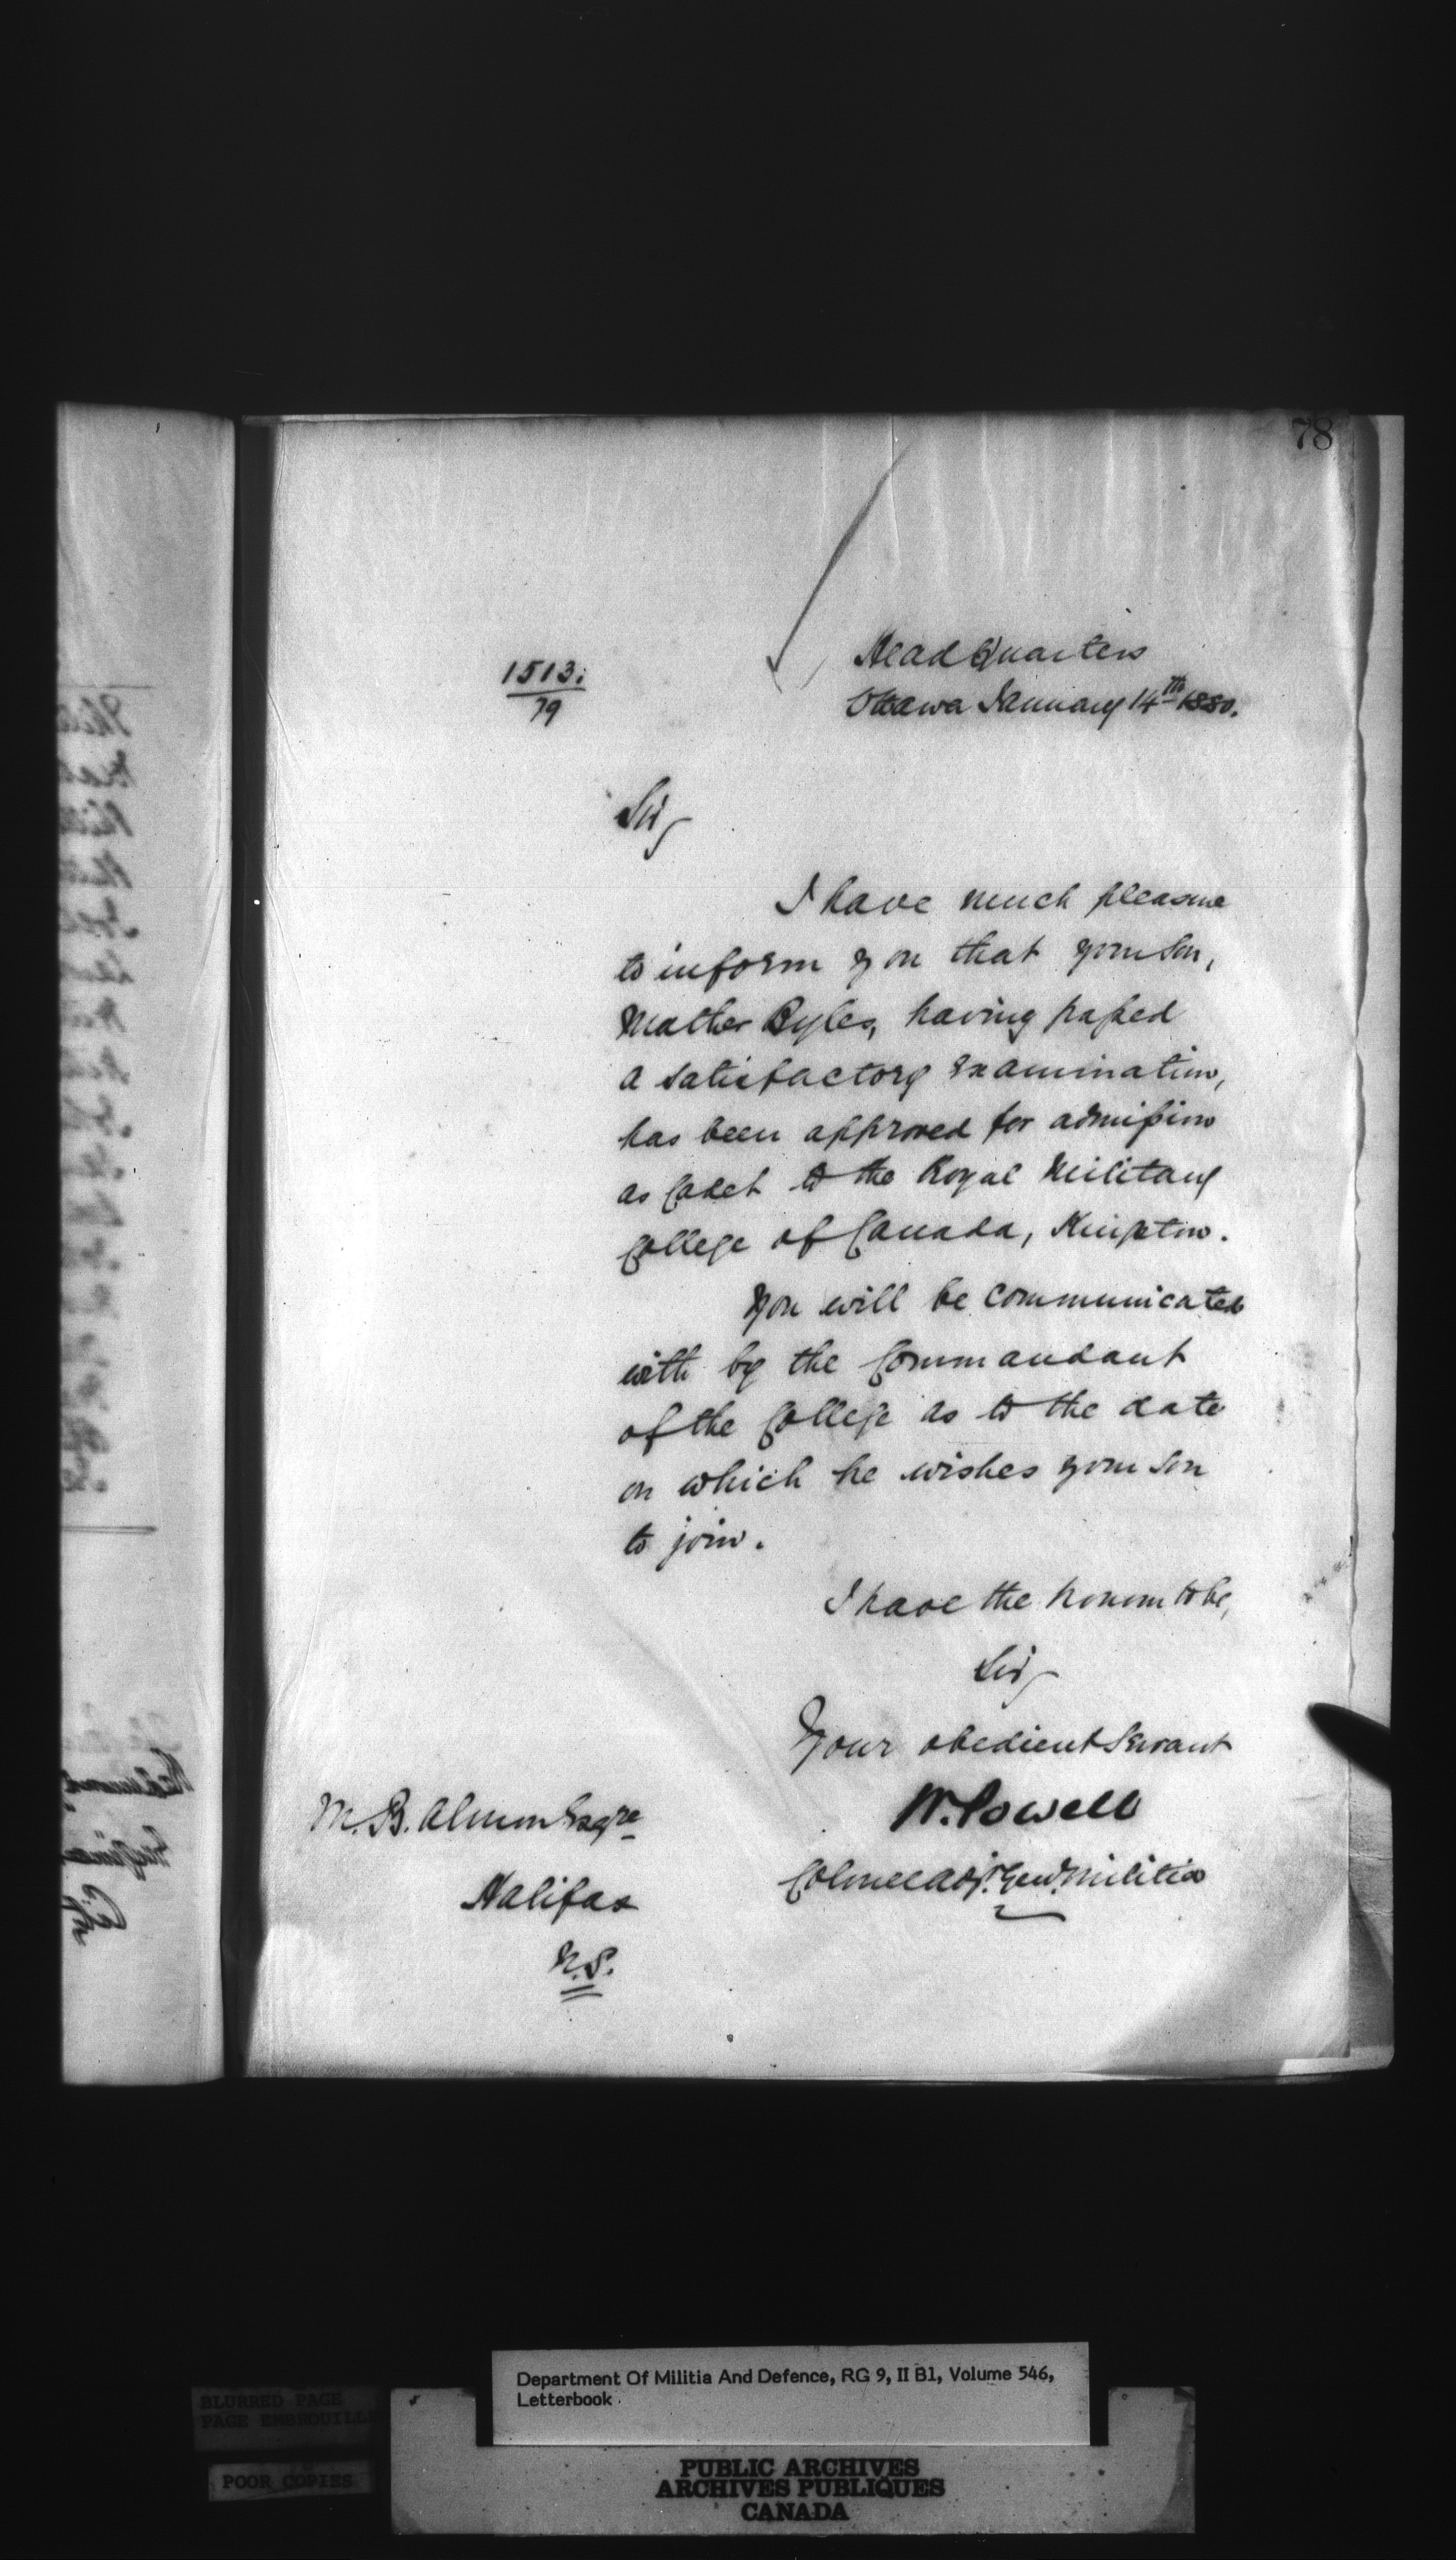 78
1513.
79
Head Quarters
Ottawa January 14th 1880.
Sir,
I have much pleasure
to inform you that your son,
Mather Byles, having passed
a satisfactory examination,
has been approved for admission
as Cadet to the Royal Military
College of Canada, Kingston.
You will be communicated
with by the Commandant
of the College as to the date
on which he wishes your son
to join.
I have the honour to be,
Sir,
Your obedient Servant
W. Powell
Colonel Adjt. Genl. Militia
M. B. Almon Esqre
Halifax
N.S.
Department Of Militia And Defence, RG 9, II B1, Volume 546,
Letterbook
BLURRED PAGE
PAGE EMBROUILLE
POOR COPIES
PUBLIC ARCHIVES
ARCHIVES PUBLIQUES
CANADA